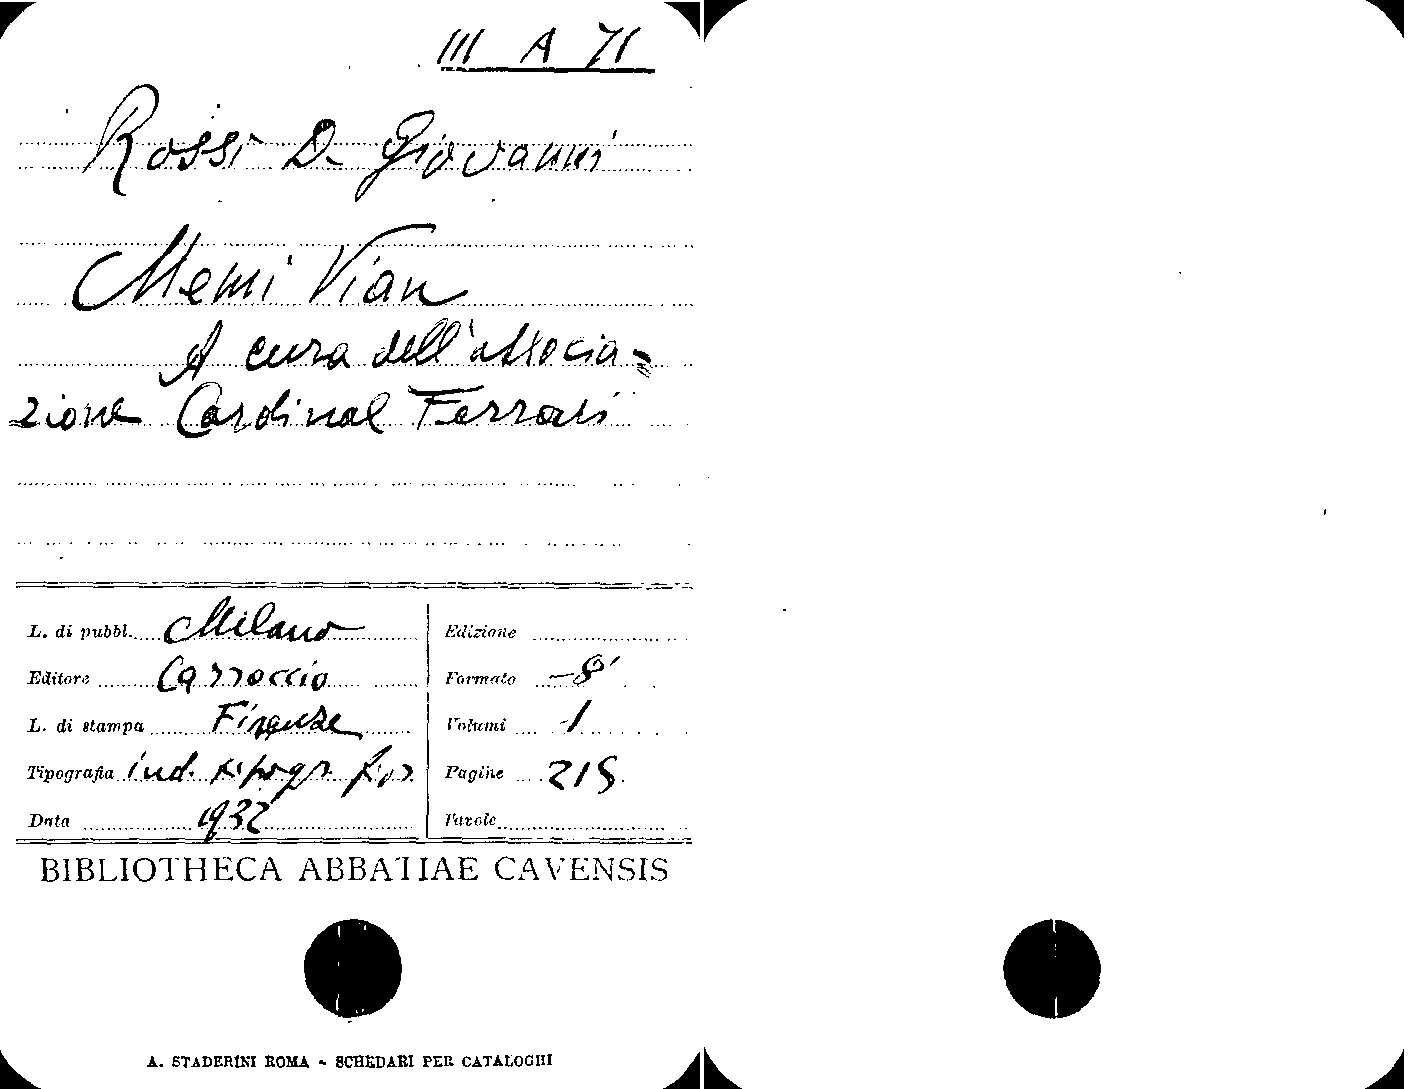 III A 71
Rossi D. Giovanni
Memi Vian
A cura dell'associa=
zione Cardinal Ferrari
L. di pubbl. Milano
Editore Carroccio
L. di stampa Firenze
Tipografia ind. tipogr. fior.
Data 1932
Edizione
Formato -8°
Volumi -1
Pagine 215
Tavole
BIBLIOTHECA ABBATIAE CAVENSIS
A. STADERINI ROMA - SCHEDARI PER CATALOGHI